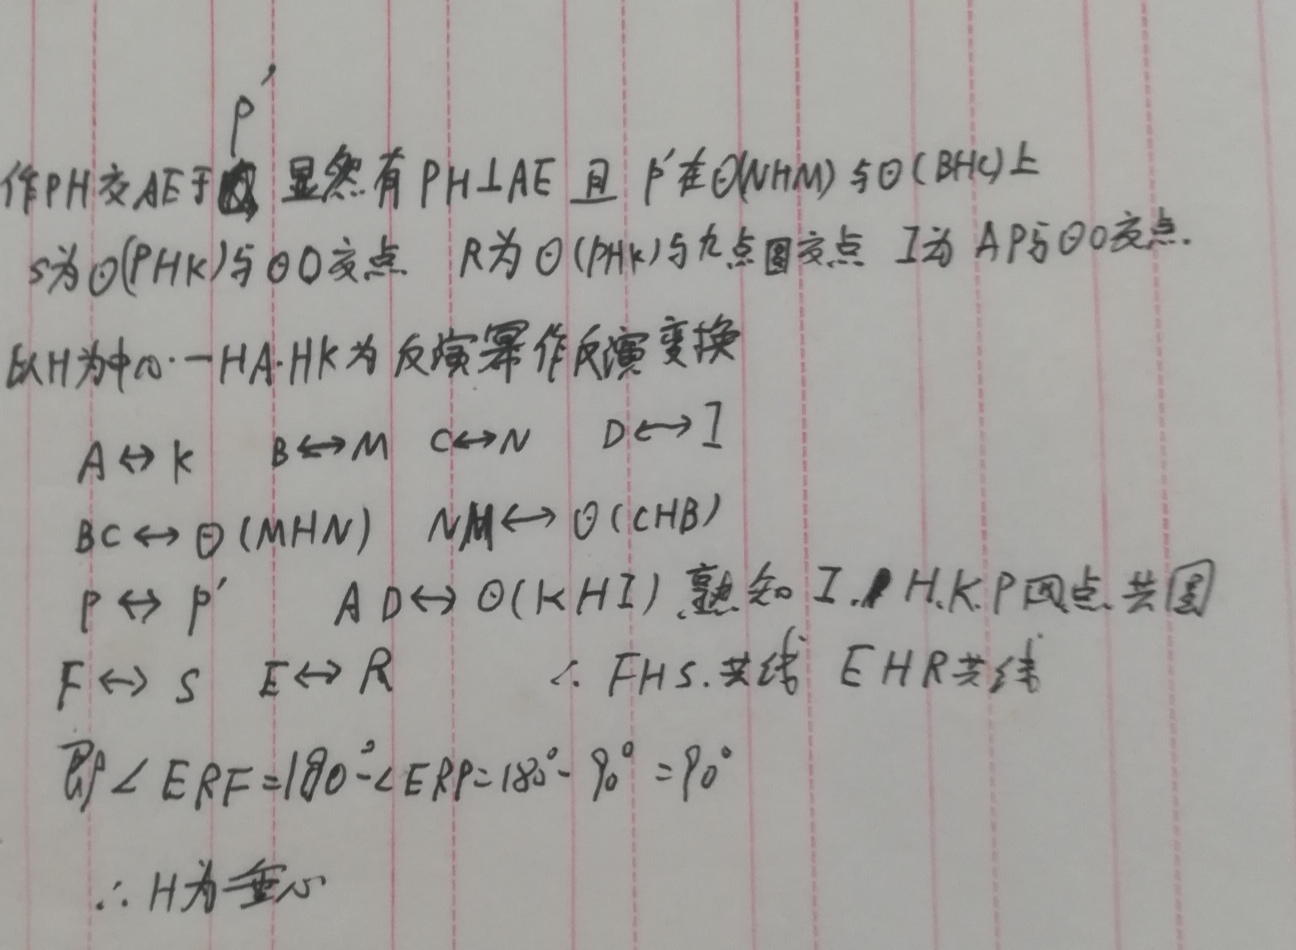 P'
作PH交AE于 显然有 PH⊥AE 且 P'在⊙(NHM)与⊙(BHC)上
S为⊙(PHK)与⊙O交点 R为⊙(PHK)与九点圆交点 I为AP与⊙O交点.
以H为中心.-HA·HK为反演幂作反演变换
A↔K B↔M C↔N D↔I
BC↔⊙(MHN) NM↔⊙(CHB)
P↔P' AD↔⊙(KHI) 熟知 I. H.K.P四点共圆
F↔S E↔R ∴FHS.共线 EHR共线
即∠ERF=180°-∠ERP=180°-90°=90°
∴H为垂心